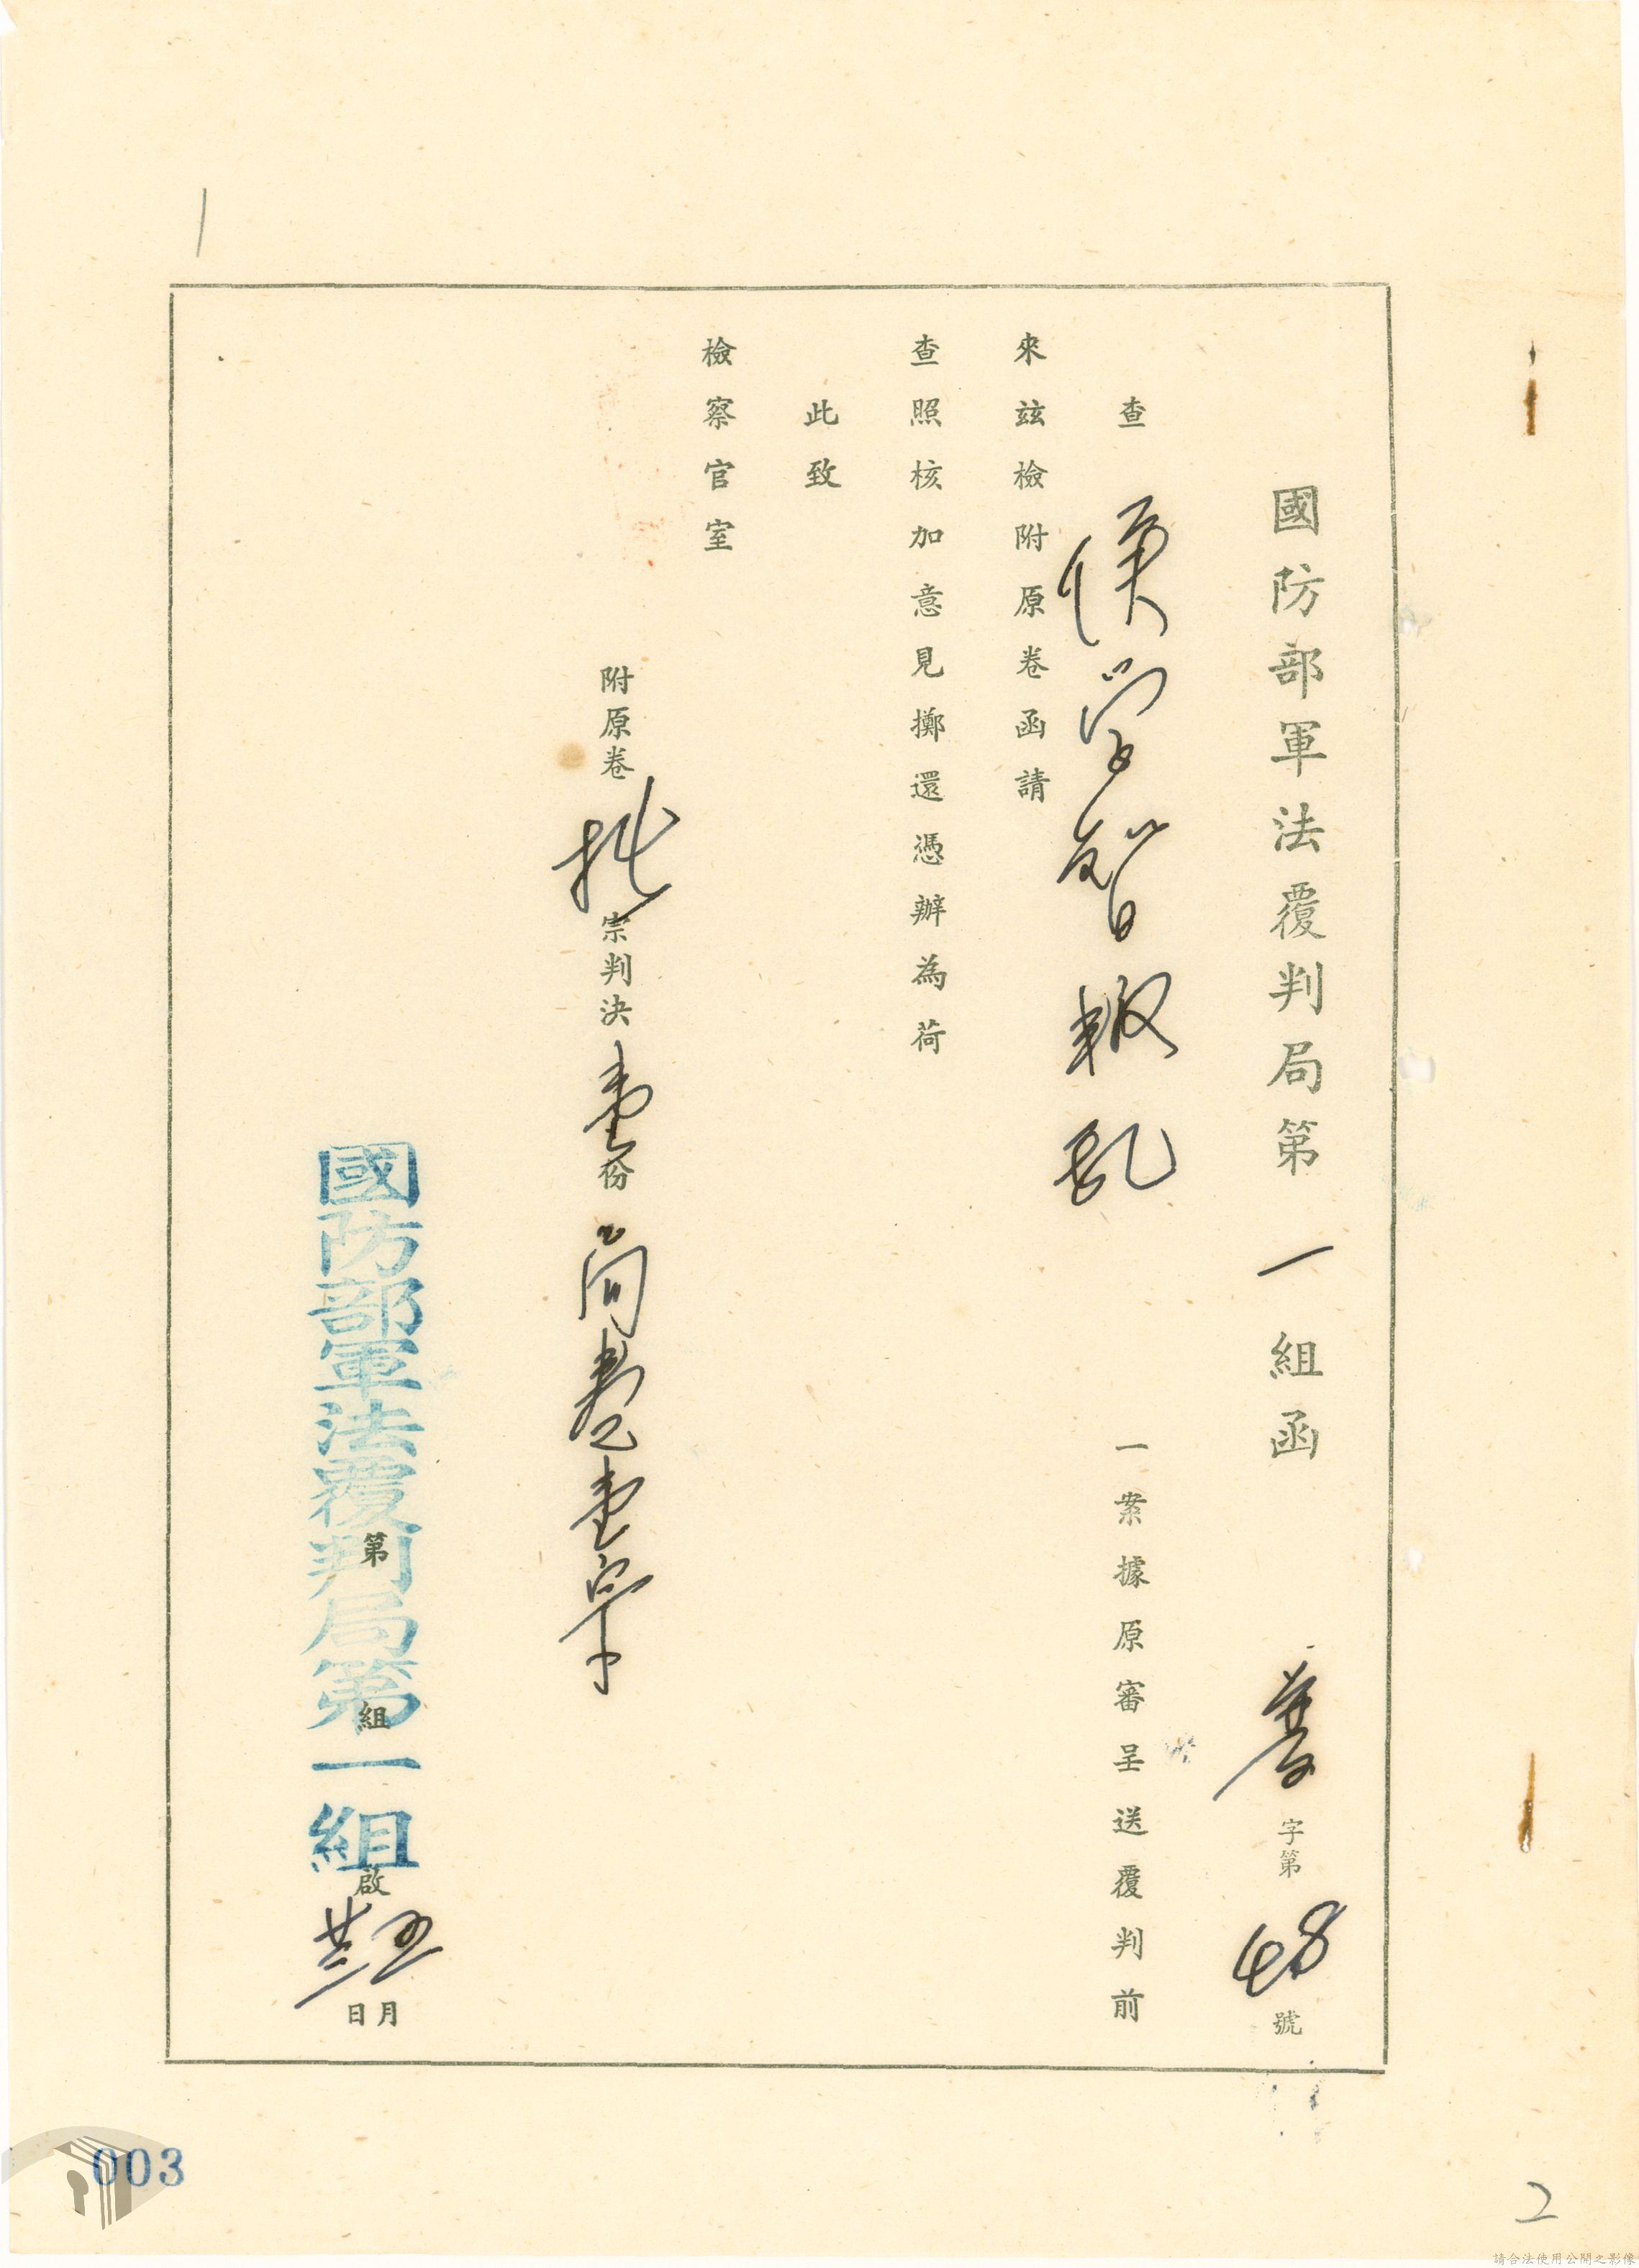 國防部軍法覆判局第一組函 字第48號
查 學智叛乱一案據原審呈送覆判前
來茲檢附原卷函請
查照核加意見擲還憑辦為荷
此致
檢察官室
附原卷 宗判決壹份 卷壹宗
國防部軍法覆判局第一組
第 組 啟
月 日
003
2
請合法使用公開之影像